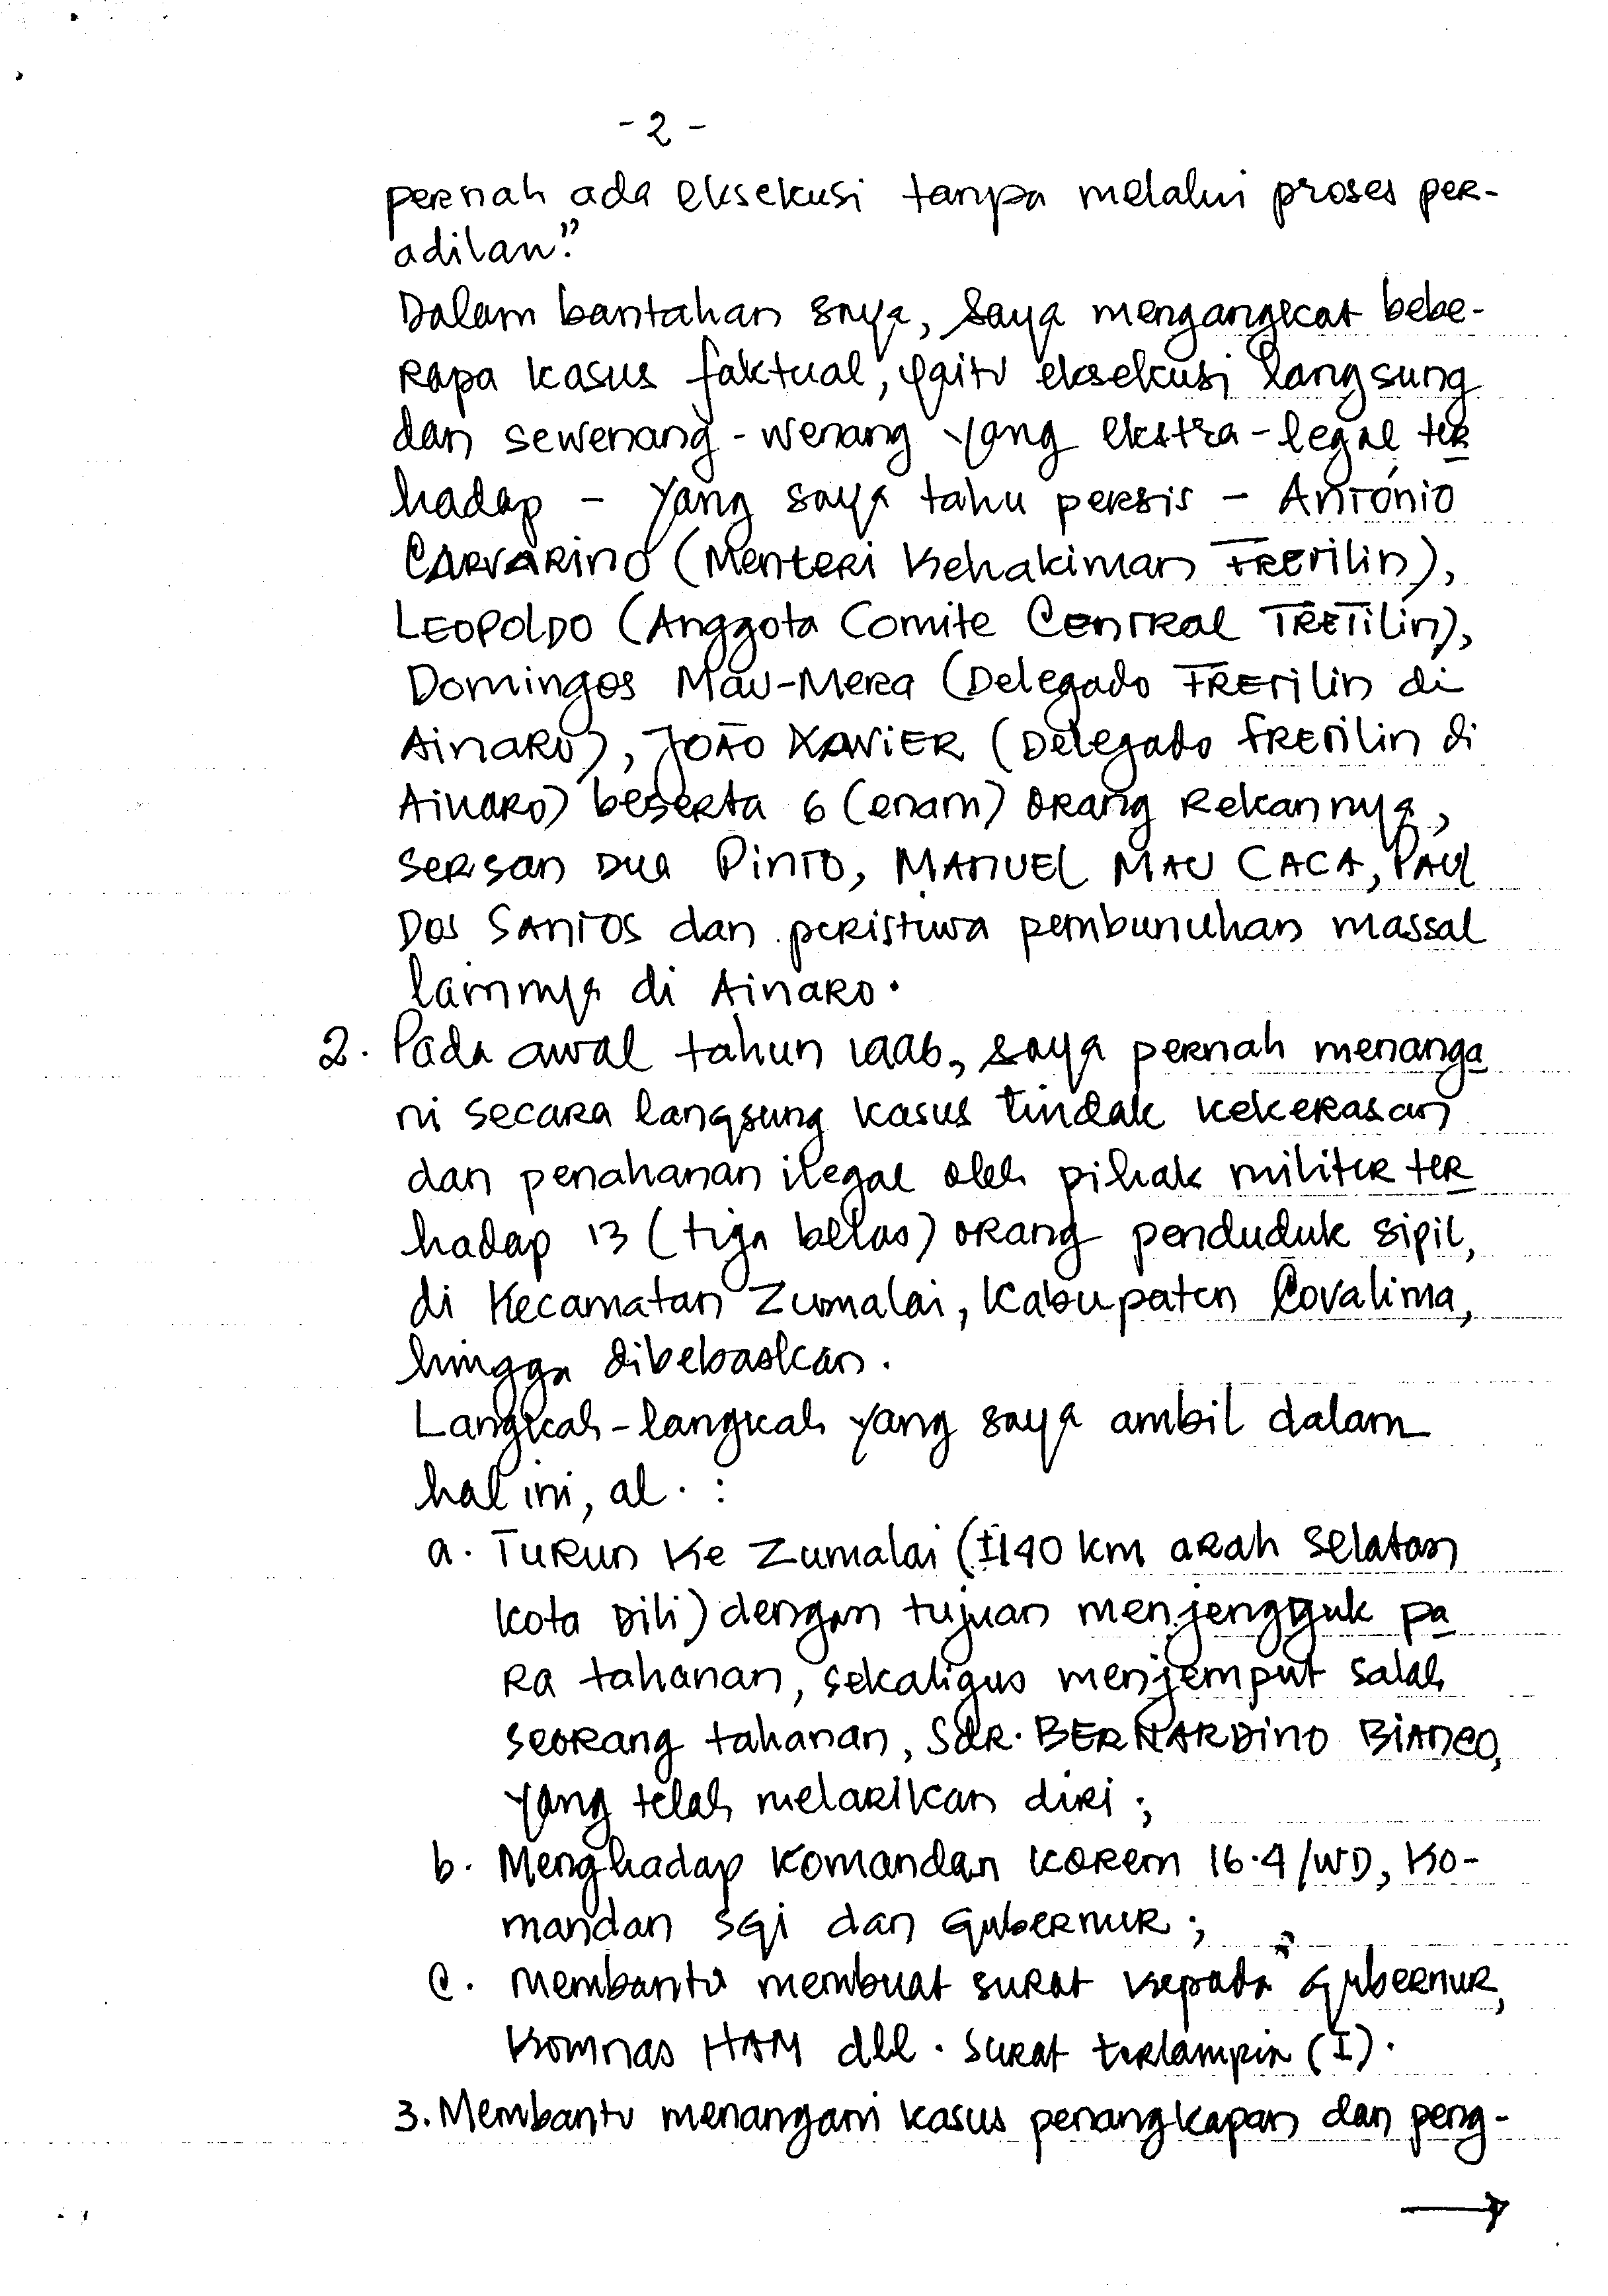 - 2 -
pernah ada eksekusi tanpa melalui proses per-
adilan."
Dalam bantahan saya, saya mengangkat bebe-
rapa kasus faktual, yaitu eksekusi langsung
dan sewenang-wenang yang ekstra-legal ter
hadap - yang saya tahu persis - António
CARVARINO (Menteri Kehakiman FRETILIN),
LEOPOLDO (Anggota Comite CENTRAL FRETILIN),
Domingos Mau-Mera (Delegado FRETILIN di
Ainaro), JOÃO XAVIER (Delegado FRETILIN di
Ainaro) beserta 6 (enam) orang rekannya,
sersan Dua PINTO, MANUEL MAU CACA, PAUL
DOS SANTOS dan peristiwa pembunuhan massal
lainnya di Ainaro.
2. Pada awal tahun 1996, saya pernah menanga
ni secara langsung kasus tindak kekerasan
dan penahanan ilegal oleh pihak militer ter
hadap 13 (tiga belas) orang penduduk sipil,
di Kecamatan Zumalai, Kabupaten Covalima,
hingga dibebaskan.
Langkah-langkah yang saya ambil dalam
hal ini, al. :
a. Turun ke Zumalai (±140 km arah selatan
kota Dili) dengan tujuan menjengguk pa
ra tahanan, sekaligus menjemput salah
seorang tahanan, Sdr. BERNARDINO BIANCO,
yang telah melarikan diri ;
b. Menghadap Komandan Korem 16.4/WD, Ko-
mandan SGI dan Gubernur ;
c. Membantu membuat surat kepada Gubernur,
Komnas HAM dll. surat terlampir (I).
3. Membantu menangani kasus penangkapan dan peng-
→